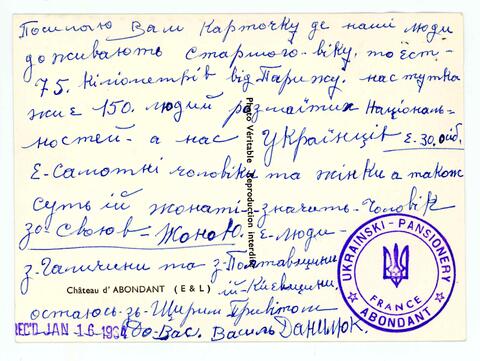 Посилаю Вам Карточку де наші люди
доживають старшого-віку, то Єст-
75. кілометрів від Парижу. нас тутка
жиє 150. людий розмаїтих Національ-
ностей- а нас Українців є-30.осіб.
Є-самотні чоловіки та жінки а також
суть ій жонаті-значить-Чоловік
зо-своюв-Жоною. Є-люди-
з-Галичини та з-Полтавщини
ій-Київщини.
остаюсь-зь-Щирим Привітом
до-Вас. Василь Данилюк.
Photo Véritable Reproduction interdite
Château d'ABONDANT (E & L)
REC'D JAN 16 1964
UKRAINSKI-PANSIONERY
FRANCE
ABONDANT